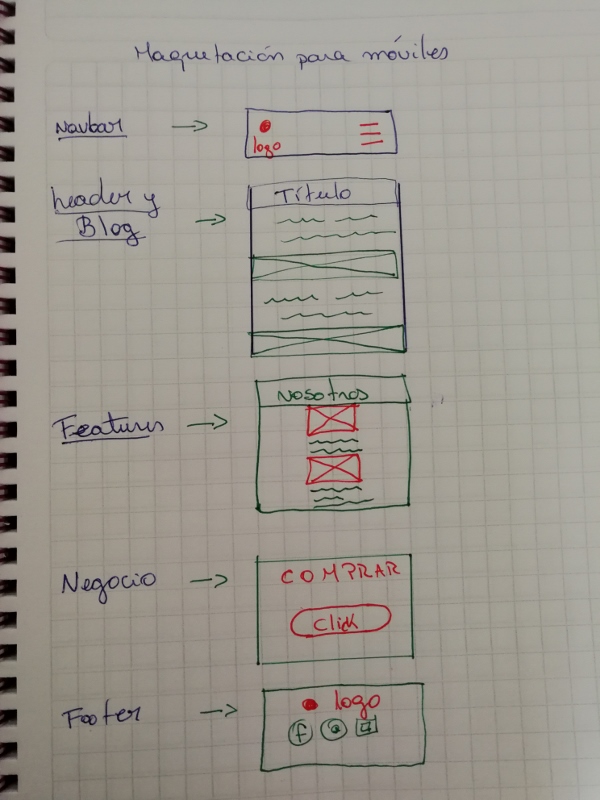 Maquetación para móviles
Navbar
logo
header y
Blog
Título
Features
Nosotros
Negocio
COMPRAR
Click
Footer
logo
f